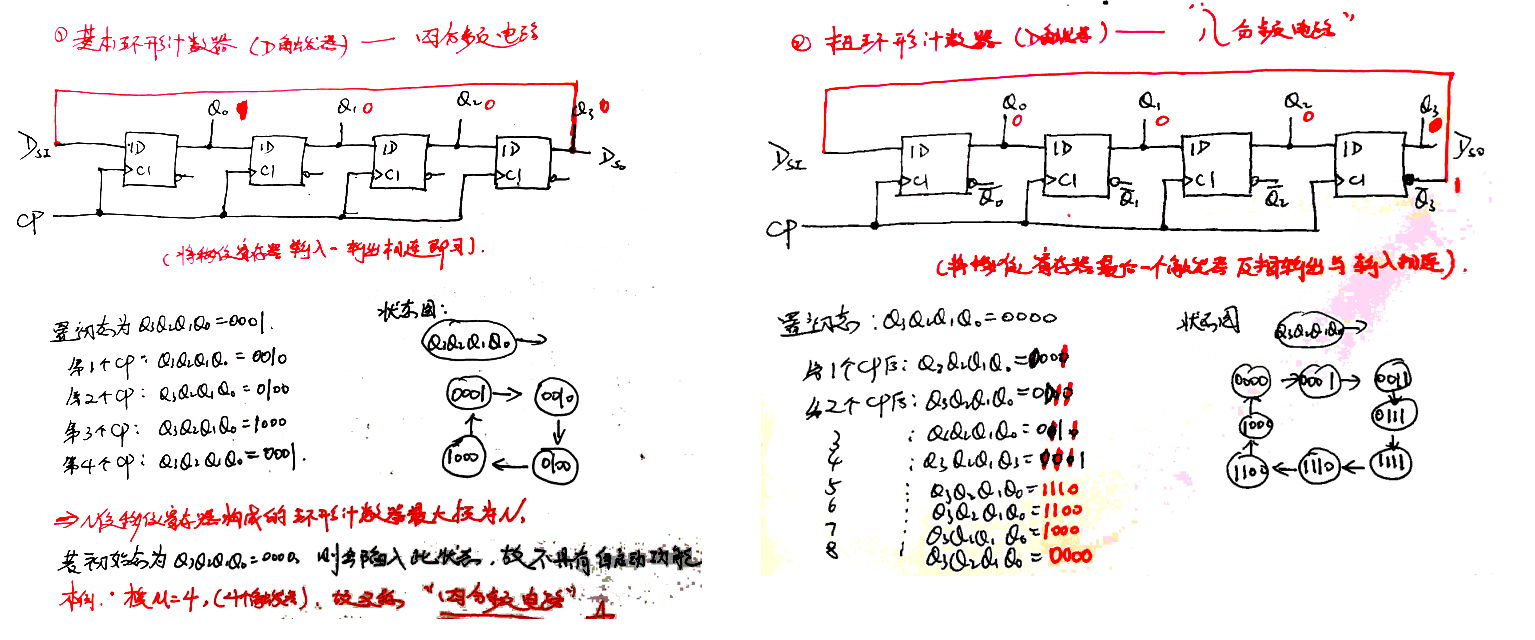 ① 基本环形计数器（D触发器）— 四分频电路
Q₀ 1 Q₁ 0 Q₂ 0 Q₃ 0
D_SI 1D 1D 1D 1D D_SO
C1 C1 C1 C1
CP
（将移位寄存器输入-输出相连即可）.
置初态为 Q₃Q₂Q₁Q₀=0001.
第1个CP: Q₃Q₂Q₁Q₀=0010
第2个CP: Q₃Q₂Q₁Q₀=0100
第3个CP: Q₃Q₂Q₁Q₀=1000
第4个CP: Q₃Q₂Q₁Q₀=0001.
状态图:
Q₃Q₂Q₁Q₀
0001 0010
1000 0100
⇒ N位移位寄存器构成的环形计数器最大模为N,
若初始态为Q₃Q₂Q₁Q₀=0000, 则会陷入此状态, 故不具有自启动功能
本例. 模M=4,（4个触发器）, 故又称 “四分频电路”
② 扭环形计数器（D触发器）— “八分频电路”
Q₀ 0 Q₁ 0 Q₂ 0 Q₃ 0
D_SI 1D 1D 1D 1D D_SO
C1 Q̅₀ C1 Q̅₁ C1 Q̅₂ C1 Q̅₃ 1
CP
（将移位寄存器最后一个触发器反相输出与输入相连）.
置初态: Q₃Q₂Q₁Q₀=0000
第1个CP后: Q₃Q₂Q₁Q₀=0001
第2个CP后: Q₃Q₂Q₁Q₀=0011
3 : Q₃Q₂Q₁Q₀=
4 : Q₃Q₂Q₁Q₃=
5 : Q₃Q₂Q₁Q₀=1110
6 Q₃Q₂Q₁Q₀=1100
7 : Q₃Q₂Q₁Q₀=1000
8 Q₃Q₂Q₁Q₀=0000
状态图
Q₃Q₂Q₁Q₀
0000 0001 0011
1000 0111
1100 1110 1111